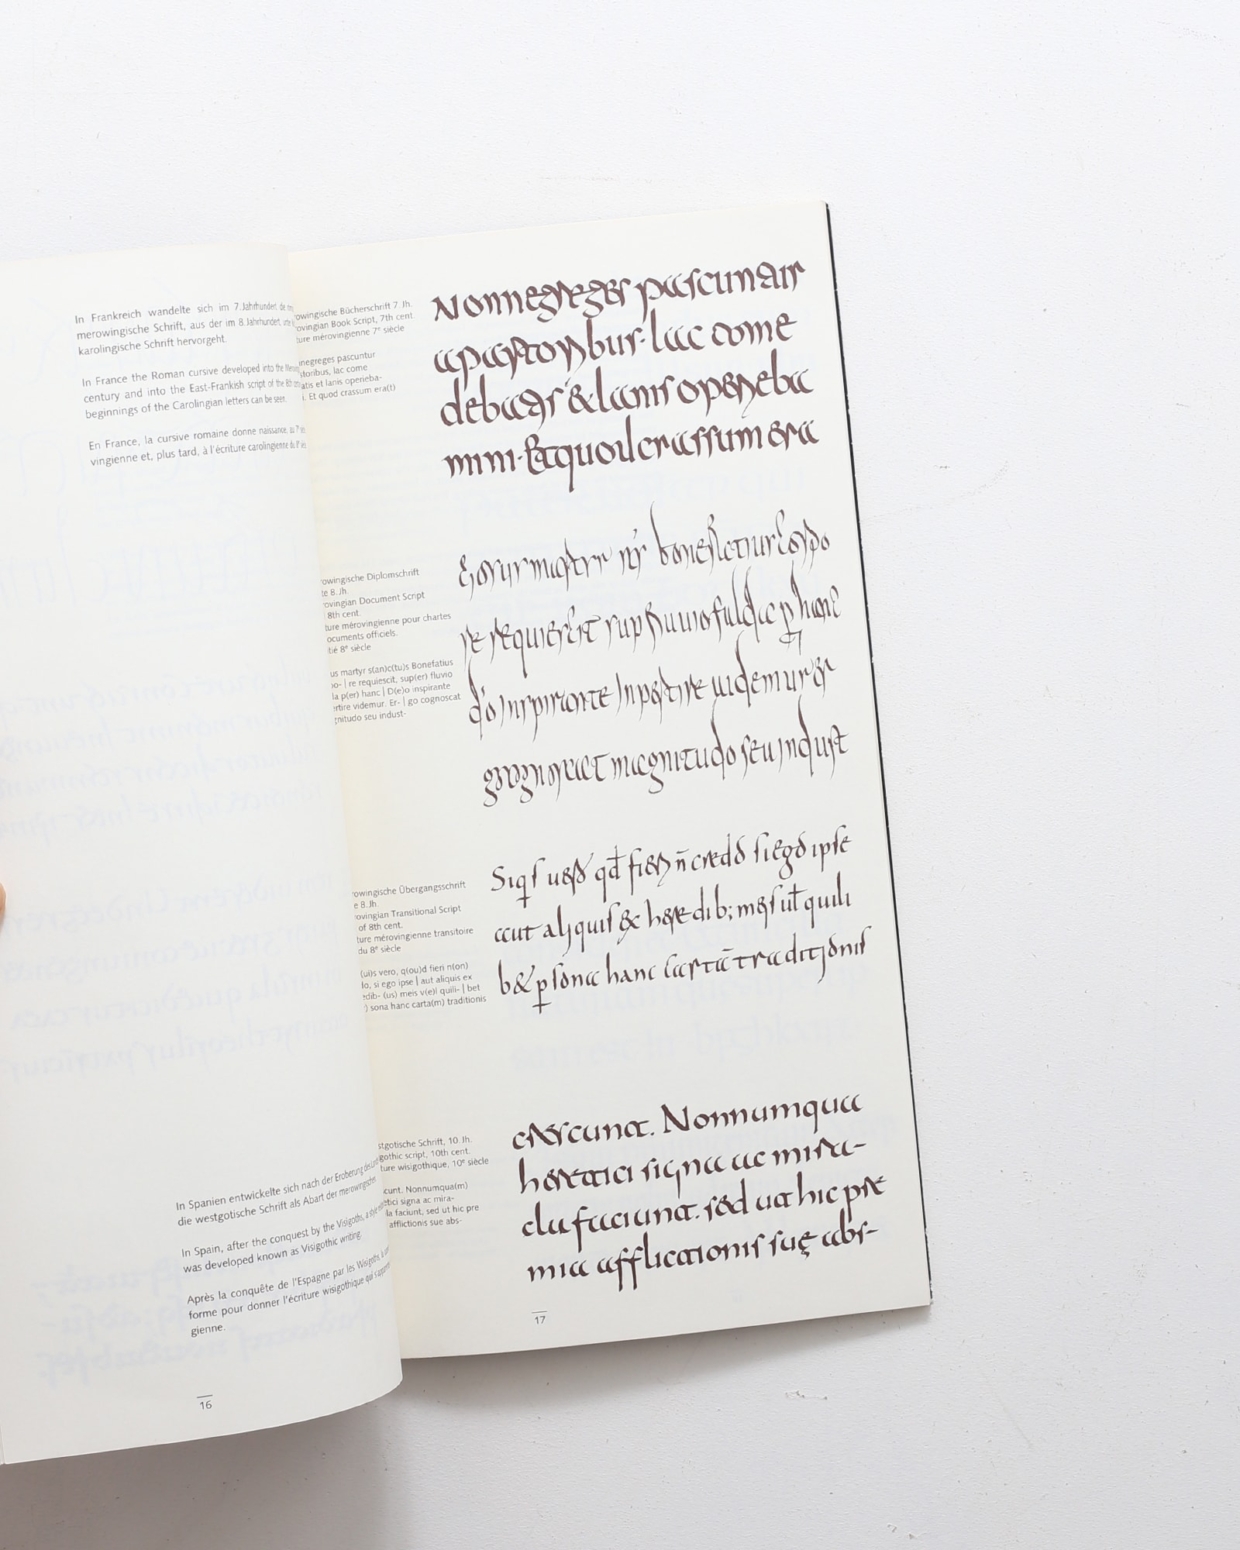 In Frankreich wandelte sich im 7. Jahrhundert die
merowingische Schrift, aus der im 8. Jahrhundert
karolingische Schrift hervorgeht.
In France the Roman cursive developed into the
century and into the East-Frankish script of the 8th
beginnings of the Carolingian letters can be seen.
En France, la cursive romaine donne naissance, au 7e
vingienne et, plus tard, à l'écriture carolingienne du
In Spanien entwickelte sich nach der Eroberung
die westgotische Schrift als Abart der merowingischen
In Spain, after the conquest by the Visigoths, a
was developed known as Visigothic writing.
Après la conquête de l'Espagne par les Wisigoths,
forme pour donner l'écriture wisigothique qui
gienne.
16
owingische Bücherschrift 7. Jh.
ovingian Book Script, 7th cent
ture mérovingienne 7e siècle
negreges pascuntur
storibus, lac come
atis et lanis openeba-
. Et quod crassum era(t)
Nonnegreges pascuntur
apastoribus. lac come
debatis & lanis openeba
mini. Et quod crassum era
owingische Diplomschrift
te 8. Jh.
ovingian Document Script
8th cent.
ture mérovingienne pour chartes
ocuments officiels.
tié 8e siècle
us martyr s(an)c(tu)s Bonefatius
po- | re requiescit, sup(er) fluvio
la p(er) hanc | D(e)o inspirante
rtire videmur. Er- | go cognoscat
gnitudo seu indust-
re requiescit sup fluuio fulda p hanc
do inspirante Inpertire uidemur er
go cognoscat magnitudo seu Indust
owingische Übergangsschrift
e 8. Jh.
ovingian Transitional Script
of 8th cent.
ture mérovingienne transitoire
du 8e siècle
(ui)s vero, q(ou)d fieri n(on)
do, si ego ipse | aut aliquis ex
edib- (us) meis v(e)l quili- | bet
) sona hanc carta(m) traditionis
Siqs uero qd fieri n̄ credo si ego ipse
aut aliquis ex heredib; meis uł quili
b& psona hanc cartā traditionis
stgotische Schrift, 10. Jh.
gothic script, 10th cent.
ture wisigothique, 10e siècle
cunt. Nonnumqua(m)
etici signa ac mira-
la faciunt, sed ut hic pre
afflictionis sue abs-
crescunt. Nonnumqua
heretici signa ac mira-
cla faciunt. sed ut hic pre
mia afflictionis suę abs-
17